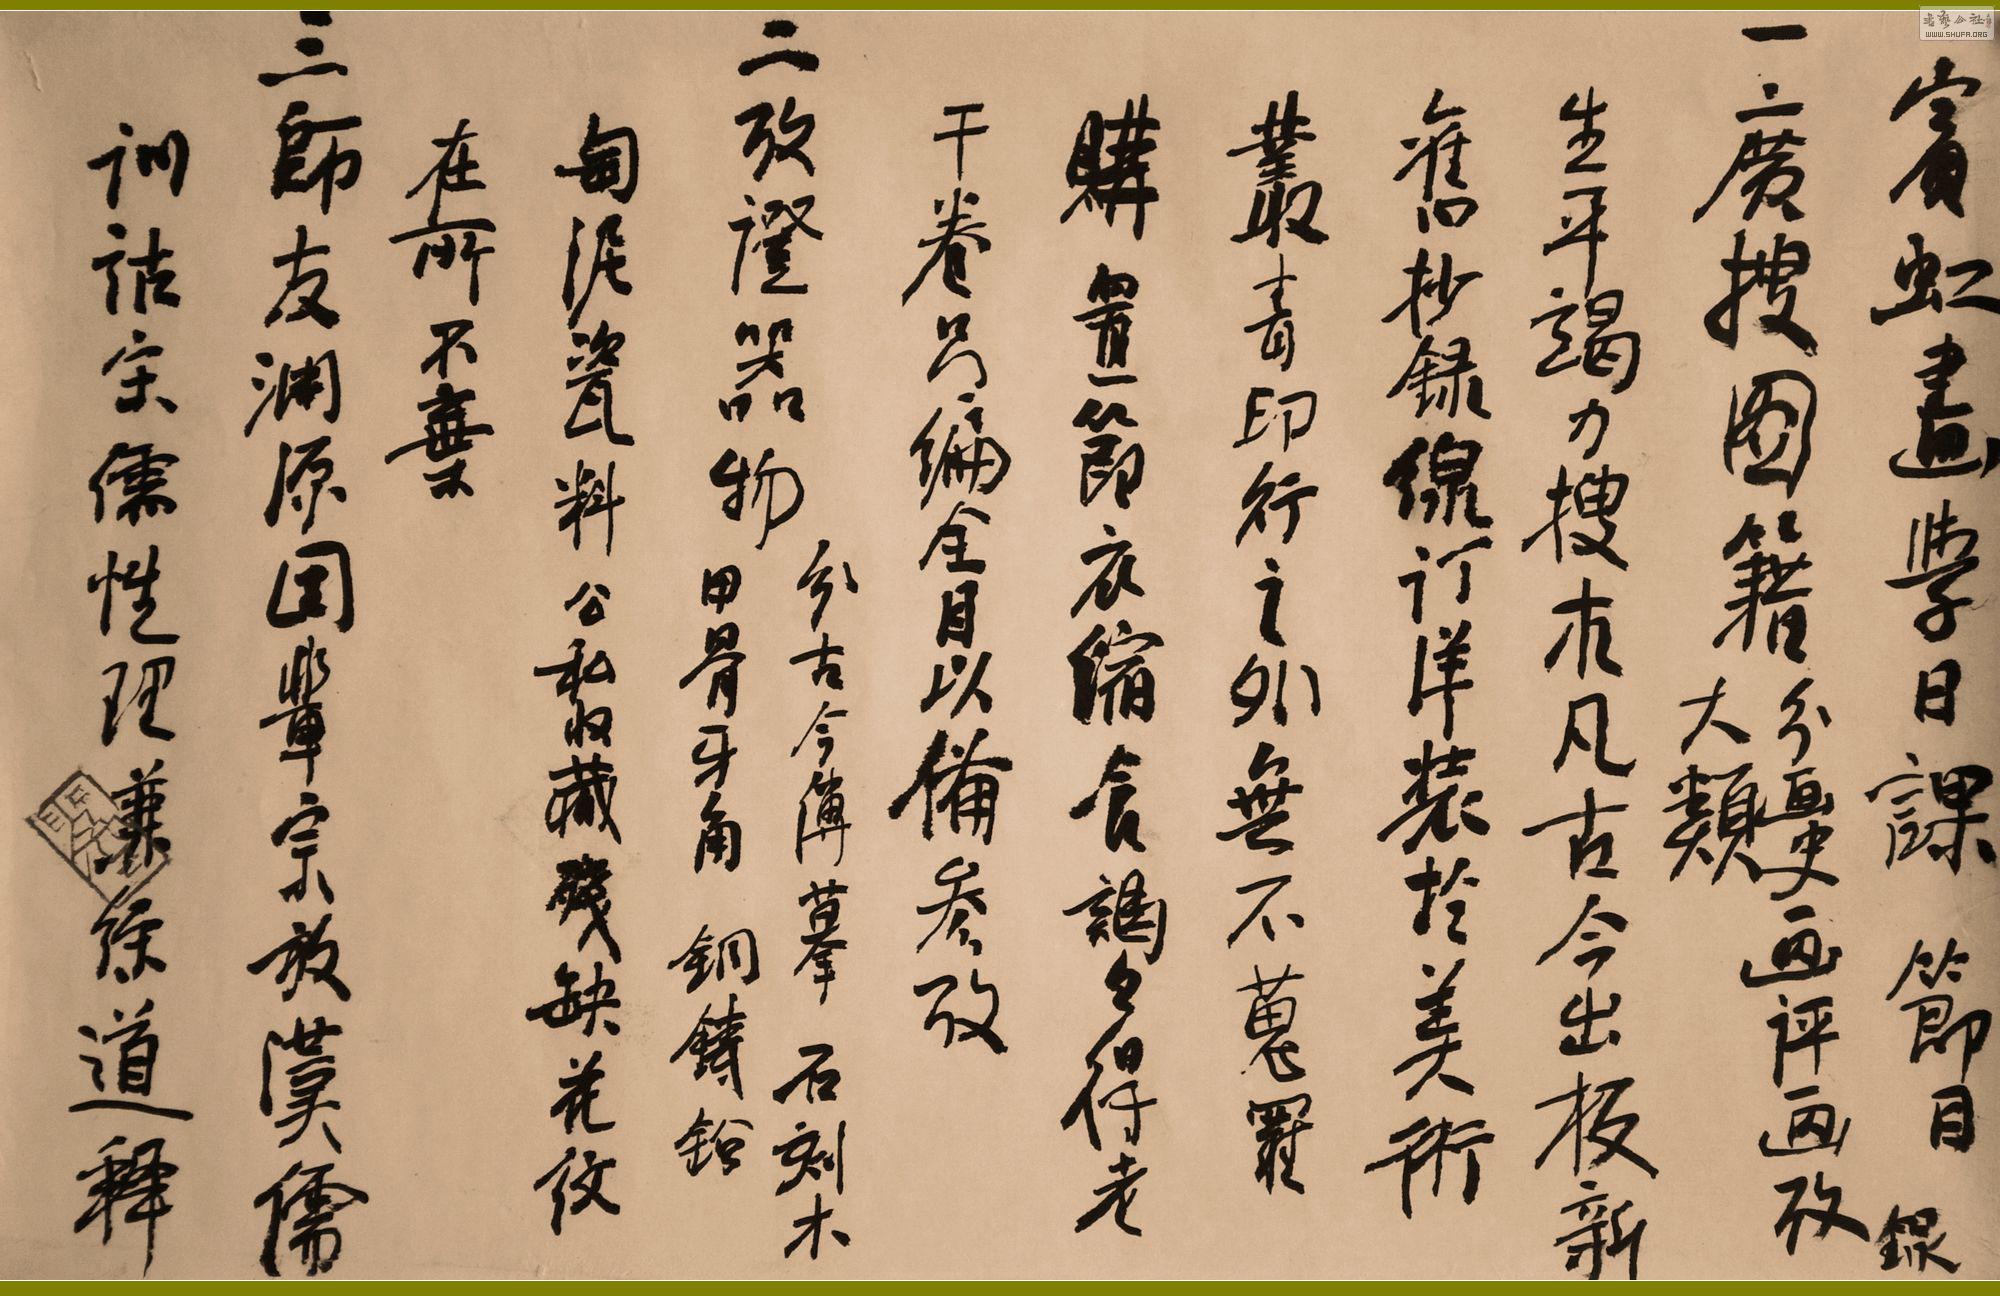 賓虹畫學日課節目 錄
一、廣搜圖籍 分画史画評画攷
大類
生平竭力搜求凡古今出板新
舊抄録線訂洋装於美術
叢書印行之外無不蒐羅
購置節衣縮食謁今得老
干卷另編全目以備参攷
二攷證器物 分古今傳摹 石刻木
甲骨牙角 銅鑄
匋泥瓷料 公私收藏殘缺花紋
在所不棄
三師友淵源 國輩宗放漢儒
訓詁宋儒性理兼綜道釋
書藝公社
WWW.SHUFA.ORG